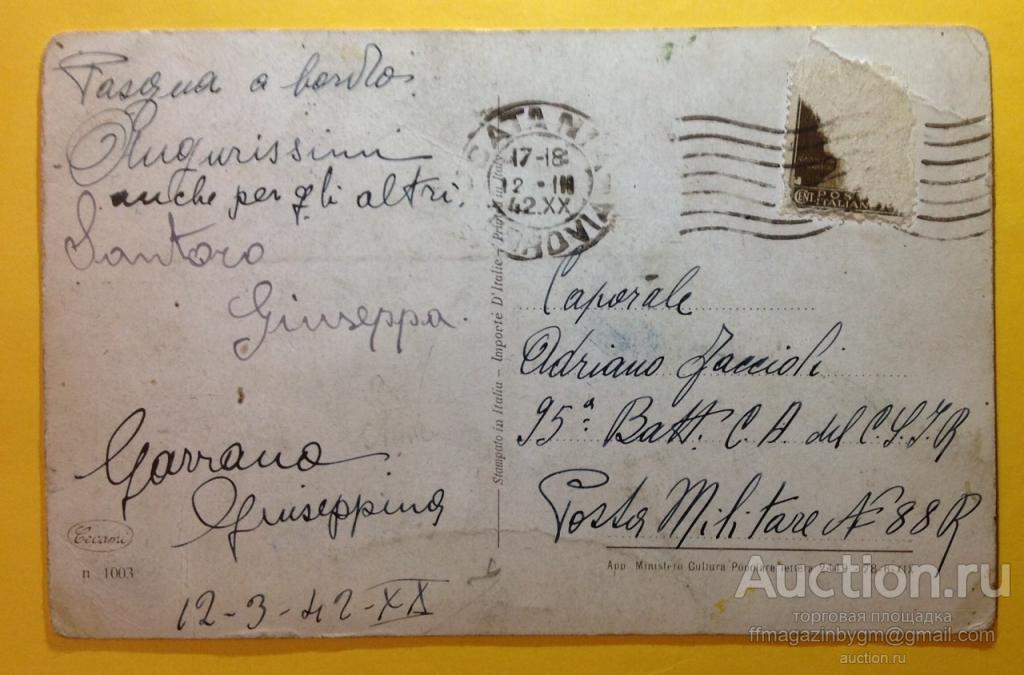 Pasqua a bordo.
Augurissimi
anche per gli altri.
Santoro
Giuseppa.
Garrano
Giuseppina
12-3-42-XX
Cecami
n 1003
CATANIA
17-18
12-III
42.XX
POSTE
ITALIANE
CENT
Stampato in Italia - Importé D'Italie - Printed in Italy
Caporale
Adriano Faccioli
95ª Batt. C. A. del C.S.I.R
Posta Militare N 88R
App. Ministero Cultura Popolare lettera
Auction.ru
торговая площадка
ffmagazinbygm@gmail.com
auction.ru